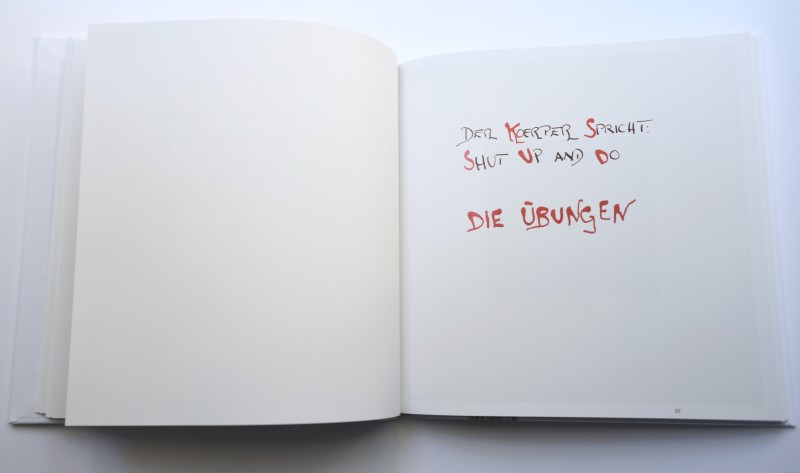 DER KOERPER SPRICHT:
SHUT UP AND DO
DIE ÜBUNGEN